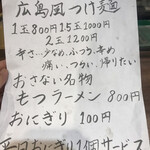 広島風つけ麺
1玉800円 1.5玉1000円
2玉1200円
辛さ…少なめ、ふつう、辛め
痛い、つらい、帰りたい
おさない名物
もつラーメン 800円
おにぎり 100円
平日おにぎり1個サービス